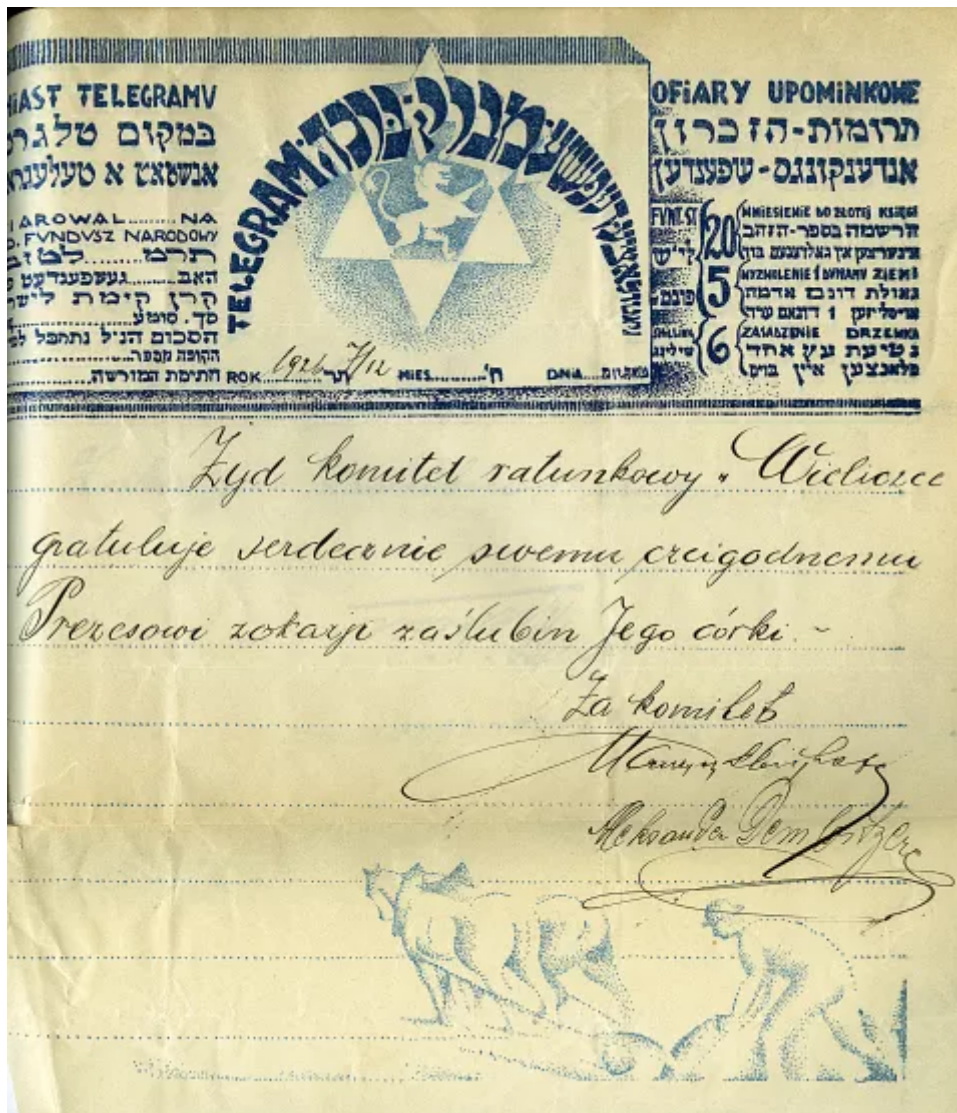 IAST TELEGRAMV
במקום טלגר
אנשטאט א טעלעגר
AROWAL......... NA
FVNDVSZ NARODOWY
תרמ........
האב......געשפענדעט
קרן קימת לישר
סך. סומע
הסכום הנ״ל נתקבל
הקופה מספר
חתימת המורשה
TELEGRAM מברק ברכה
ROK 1926 7/12 MIES.......... DNIA
OFIARY UPOMINKOWE
תרומות-הזכרון
אנדענקונגס-שפענדען
FVNT.ST 20 WNIESIENIE DO ZŁOTEJ KSIĘGI
הרשמה בספר-הזהב
5 WYZWOLENIE 1 DVNAMV ZIEMI
גאולת דונם אדמה
6 ZASADZENIE DRZEWKA
נטיעת עץ אחד
פלאנצען איין בוים
Żyd komitet ratunkowy w Wieliczce
gratuluje serdecznie swemu czcigodnemu
Prezesowi z okazji zaślubin Jego córki. ~
Za komitet
Aleksander